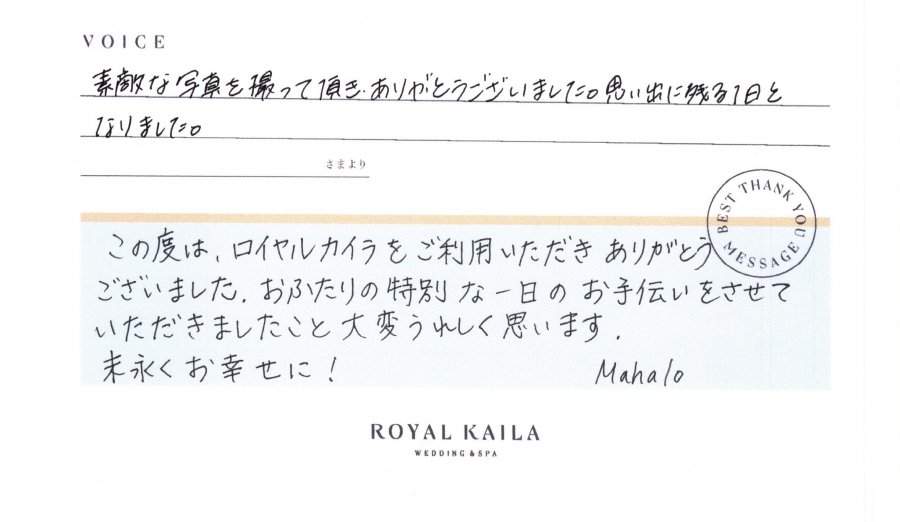 VOICE
素敵な写真を撮って頂き、ありがとうございました。思い出に残る1日と
なりました。
さまより
BEST THANK YOU MESSAGE
この度は、ロイヤルカイラをご利用いただき ありがとう
ございました。おふたりの特別な一日のお手伝いをさせて
いただきましたこと大変うれしく思います。
末永くお幸せに!
Mahalo
ROYAL KAILA
WEDDING & SPA